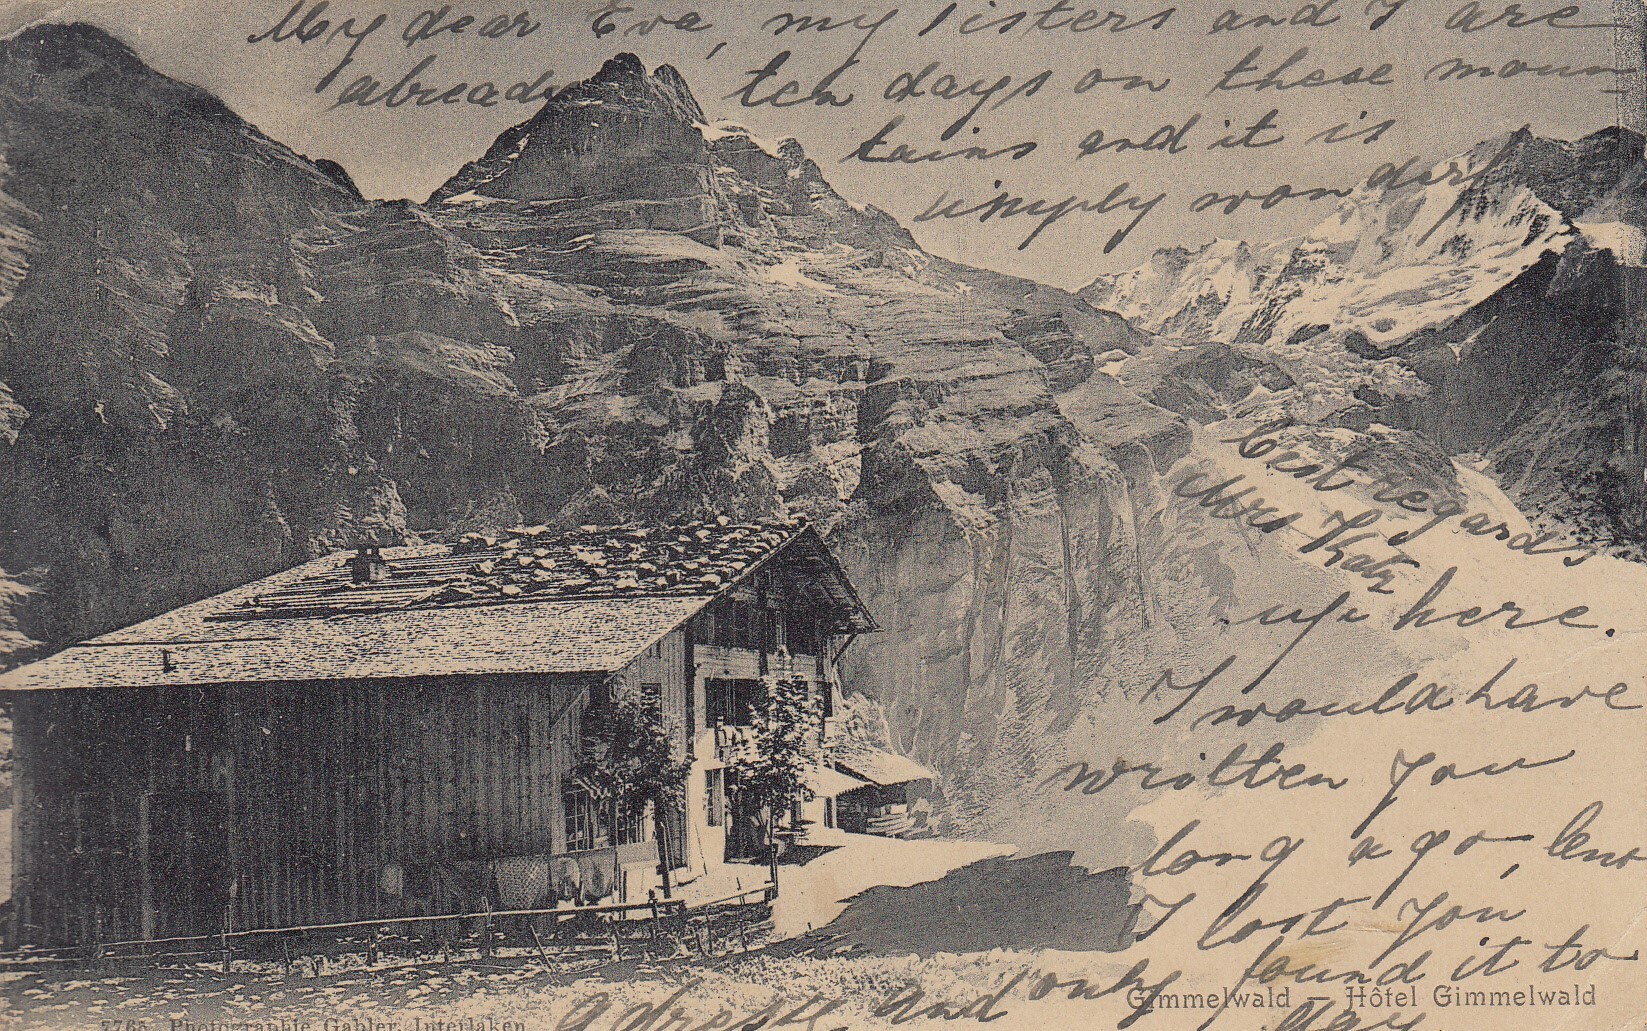 My dear Eva, my sisters and I are
already ten days on these moun-
tains and it is
simply wonderf
up here.
I would have
written you
long ago, but
I lost you
adresse and only found it to
day
Best regards
Mrs Katz
Gimmelwald – Hôtel Gimmelwald
7765 Photographie Gabler, Interlaken